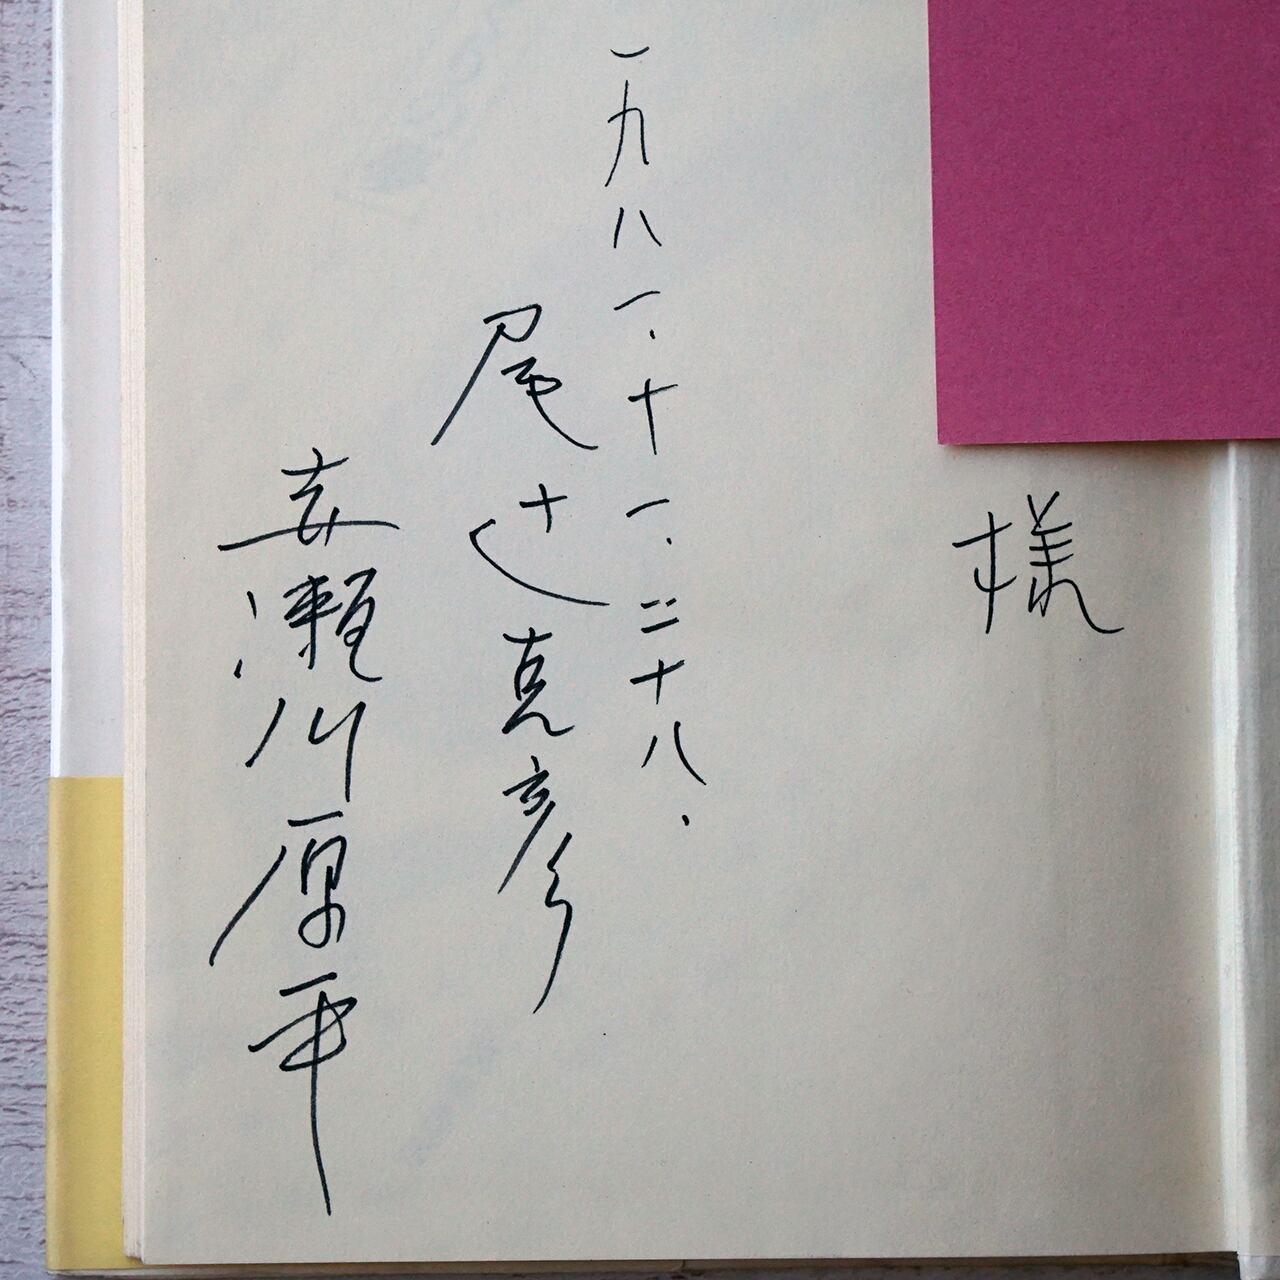 様
一九八一.十一.二十八.
尾辻克彦
赤瀬川原平